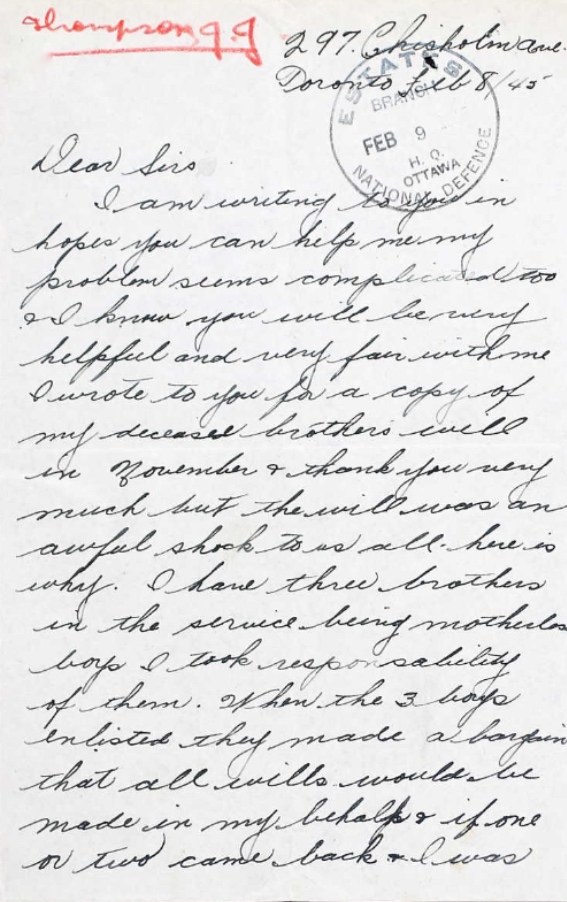 Thompson, J. J
297. Chisholm ave.
Toronto Feb 8/45
ESTATES
BRANCH
FEB 9
H. Q.
OTTAWA
NATIONAL DEFENCE
Dear Sirs
I am writing to you in
hopes you can help me my
problem seems complicated too
& I know you will be very
helpful and very fair with me
I wrote to you for a copy of
my deceased brothers will
in November & thank you very
much but the will was an
awful shock to us all. here is
why. I have three brothers
in the service being motherless
boys I took responsability
of them. When the 3 boys
enlisted they made a bargain
that all wills would be
made in my behalf & if one
or two came back & I was